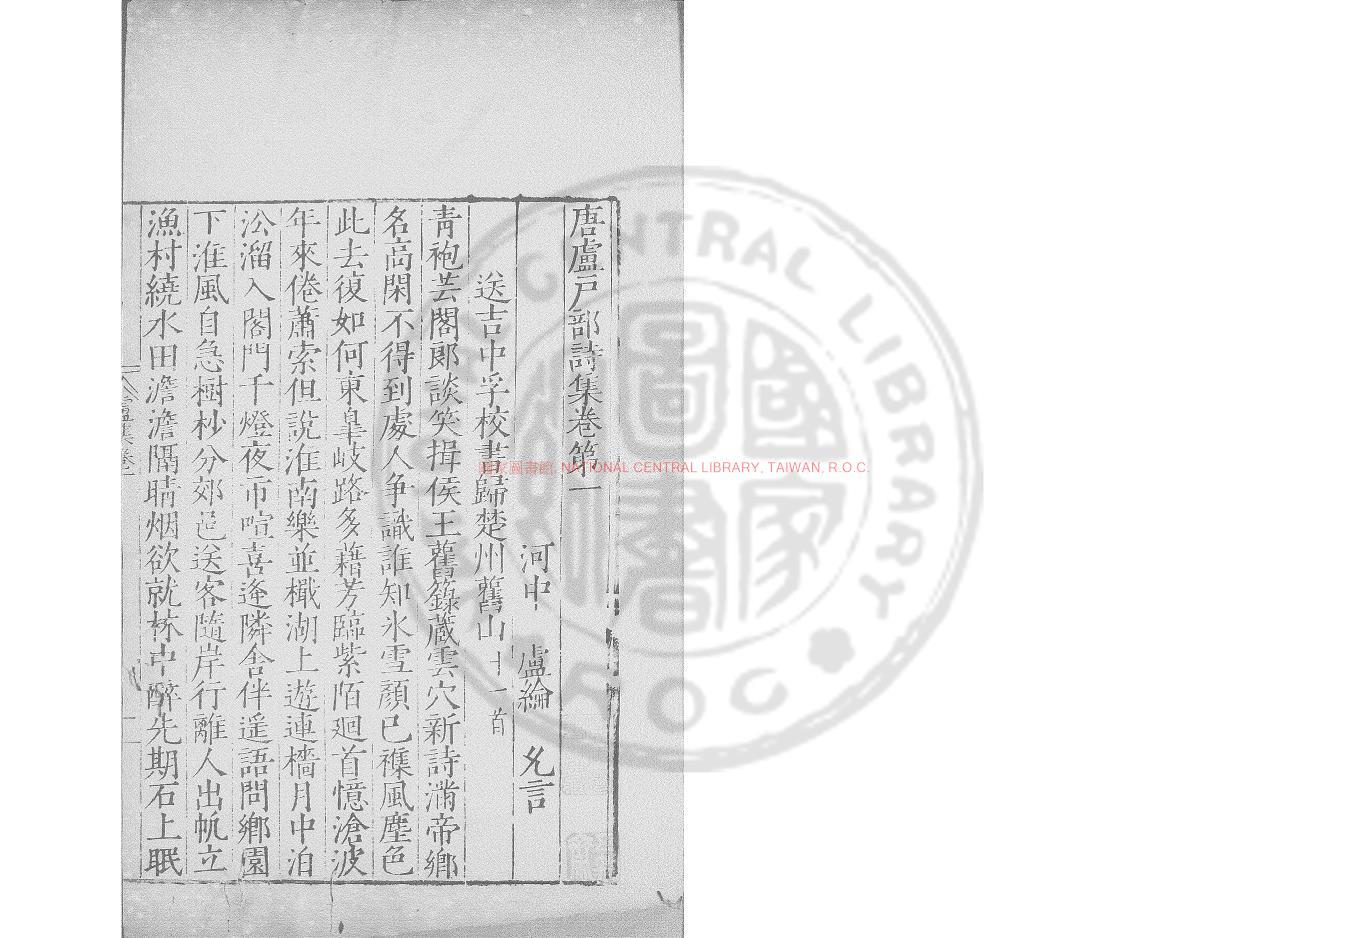 唐盧戶部詩集卷第一
河中 盧綸 允言
送吉中孚校書歸楚州舊山 十一首
青袍芸閣郎談笑揖侯王舊籙藏雲穴新詩滿帝鄉
名高閑不得到處人爭識誰知氷雪顏已襍風塵色
此去復如何東皐岐路多藉芳臨紫陌廻首憶滄波
年來倦蕭索但說淮南樂並檝湖上遊連檣月中泊
沿溜入閶門千燈夜市喧喜逢隣舍伴遥語問鄉園
下淮風自急樹杪分郊邑送客隨岸行離人出帆立
漁村繞水田澹澹隔晴烟欲就林中醉先期石上眠
盧集卷一
一
國家圖書館, NATIONAL CENTRAL LIBRARY, TAIWAN, R.O.C.